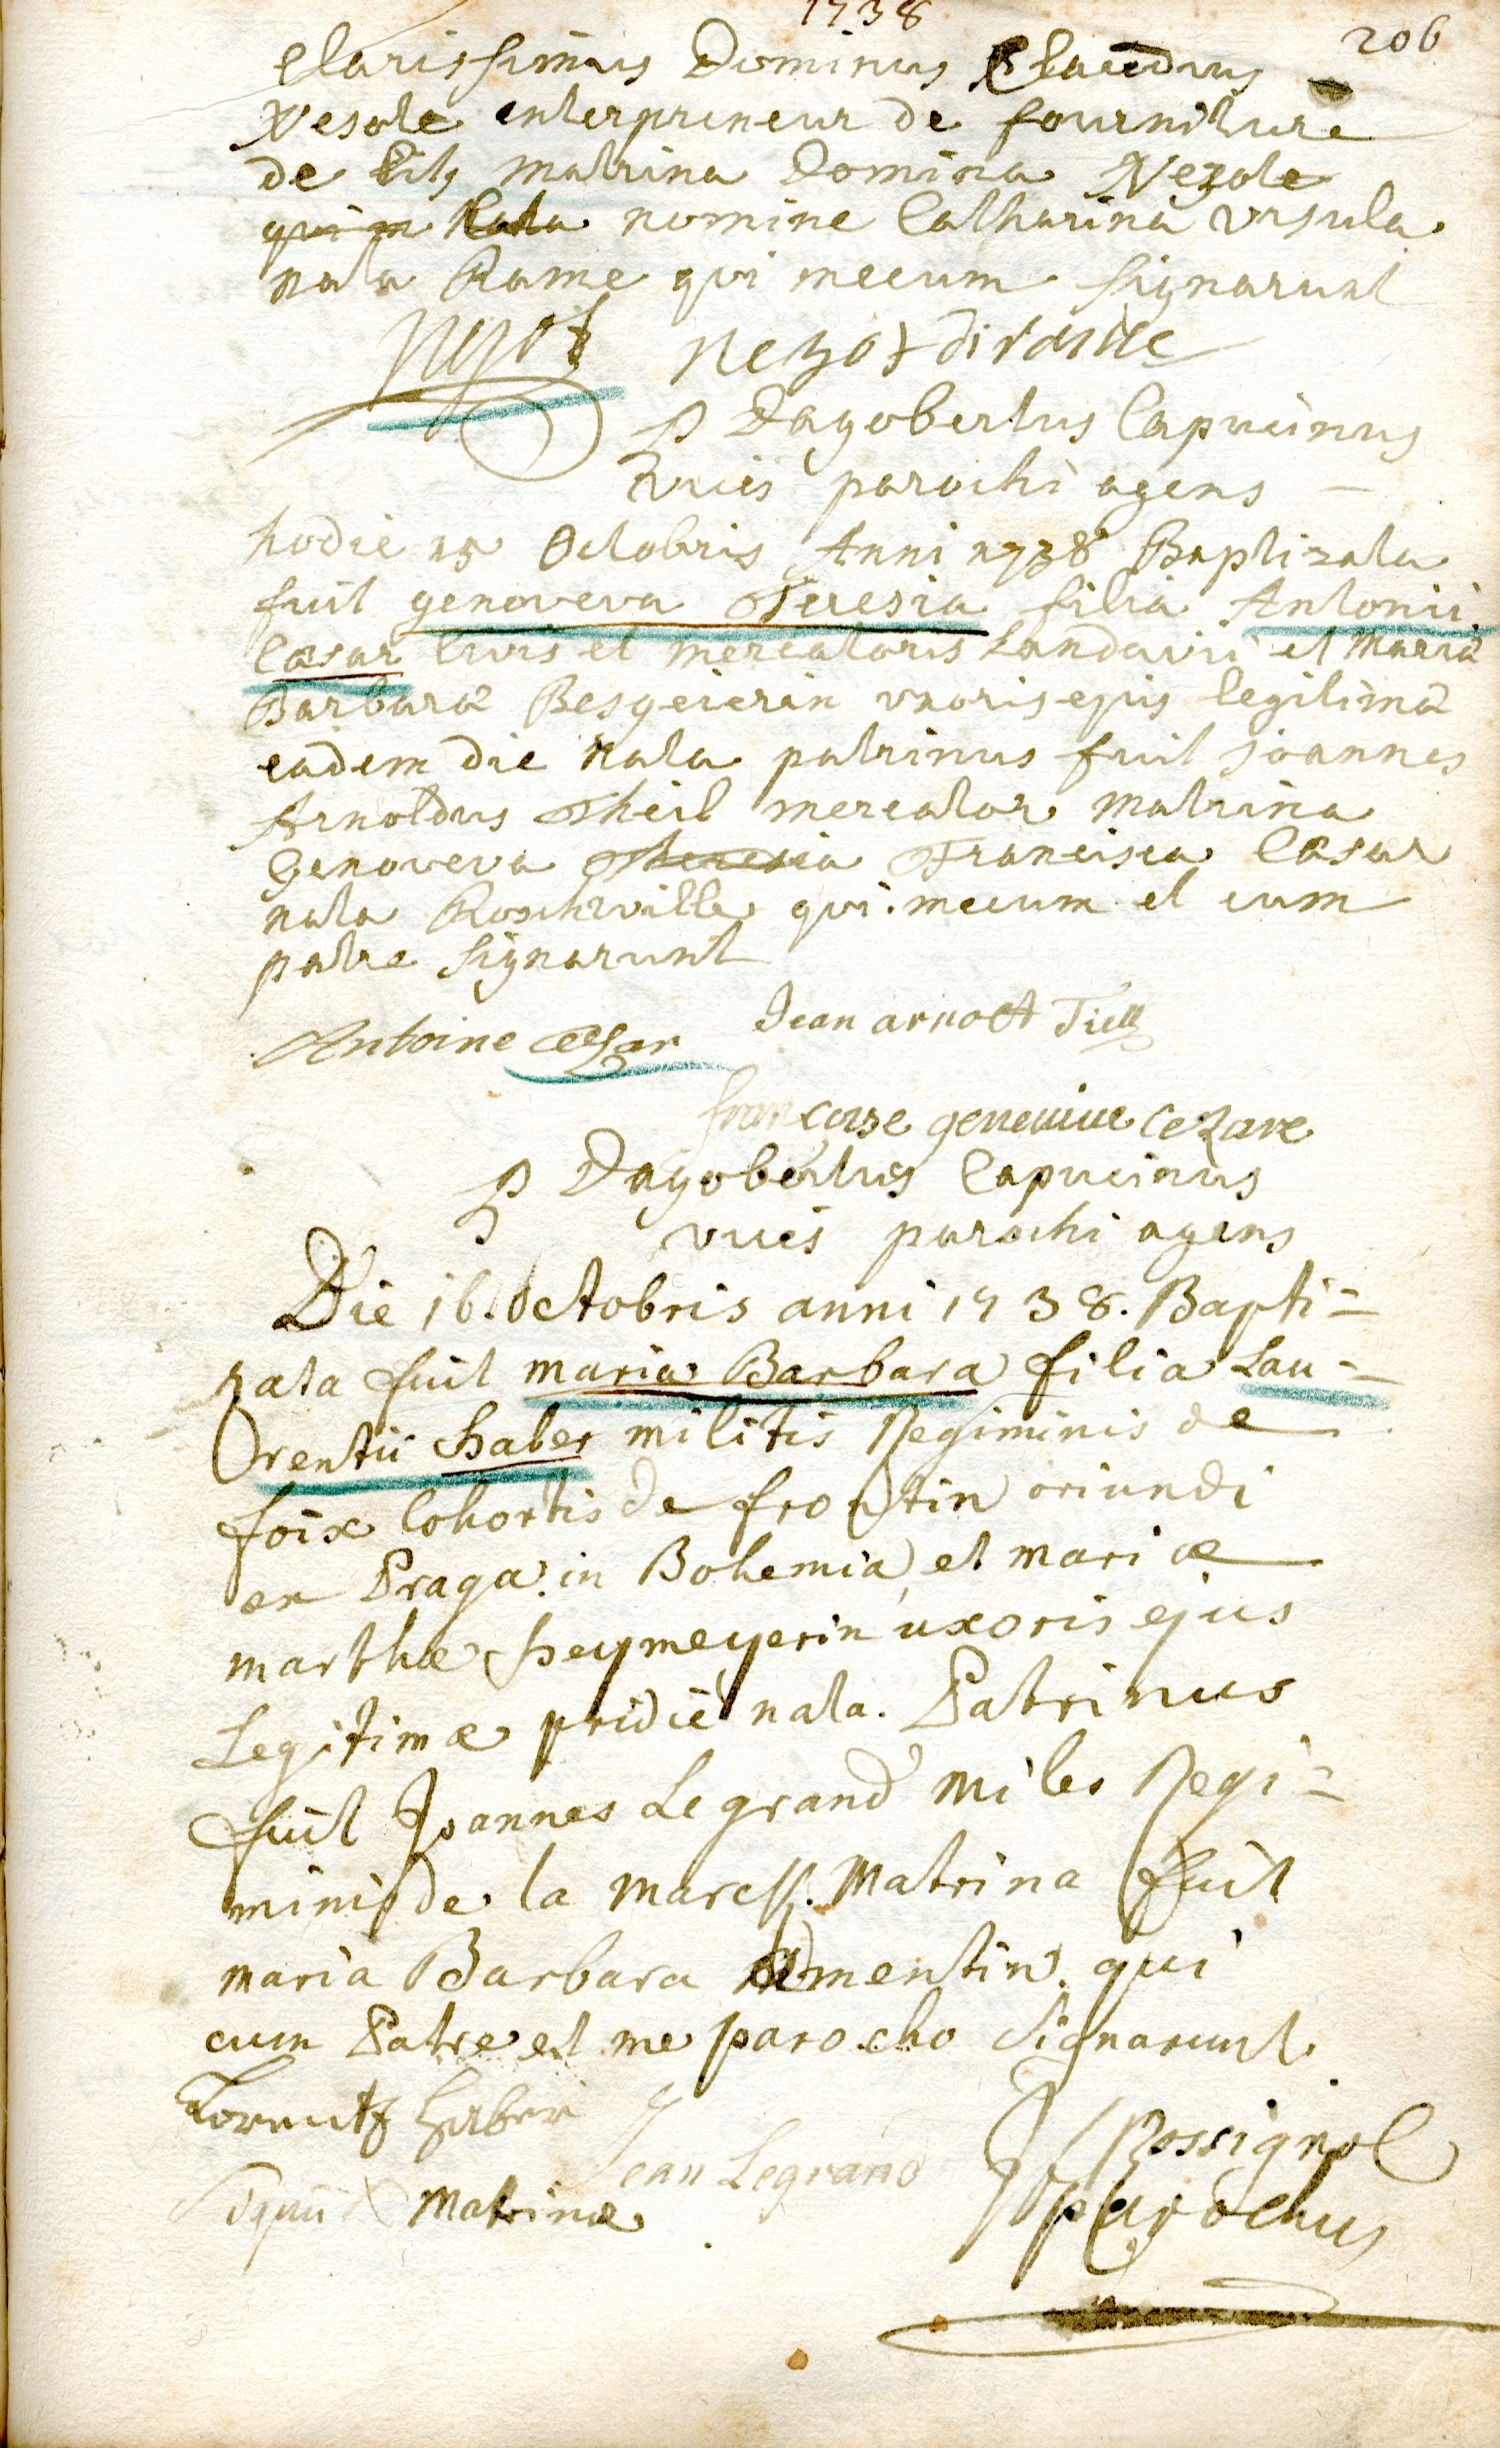 1738
206
Clarissimus Dominus Claudius
Nesole enterpreneur de fourniture
de Lits matrina Domina Nezole
nomine Catharina Ursula
nata Rame qui mecum signarunt
P Dagobertus Capucinus
vices parochi agens
hodie 15 Octobris Anni 1738 Baptizata
fuit genoveva Teresia filia Antonii
Cæsar Civis et mercatoris Landavii et Mariæ
Barbaræ Besgeierin uxoris ejus legitimæ
eadem die nata patrinus fuit Joannes
Arnoldus Theil mercator matrina
Genoveva Theresia Francisca Cæsar
nata Roschwille qui mecum et cum
patre signarunt
Antoine Cesar Jean arnolt Tiell
francoise genevive Cezare
P Dagobertus Capucinus
vices parochi agens
Die 16. Octobris anni 1738. Bapti=
zata fuit maria Barbara filia Lau=
rentii haber militis Regiminis de
foix Cohortis de frontin oriundi
ex Praga in Bohemia, et mariæ
marthæ heymeyerin uxoris ejus
Legitimæ pridie nata. Patrinus
fuit Joannes Legrand miles Regi=
minis de la marck. Matrina fuit
maria Barbara mentin qui
cum Patre et me parocho Signarunt.
Lorentz Haber
Jean Legrand
Rossignol
parochus
Signum X Matrinæ